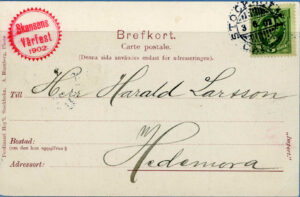 Skansens
Vårfest
1902.
STOCKHOLM
Brefkort.
Carte postale.
(Denna sida användes endast för adresseringen).
Till
Herr Harald Larsson
Bostad:
(om den kan uppgifvas)
Adressort:
Hedemora